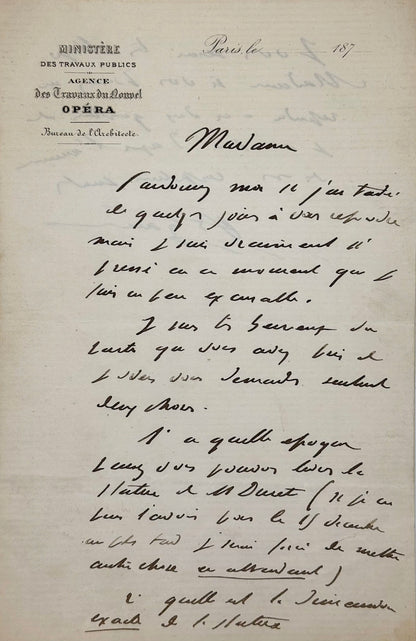 MINISTÈRE
DES TRAVAUX PUBLICS
AGENCE
des Travaux du Nouvel
OPÉRA
Bureau de l'Architecte.
Paris, le 187
Madame
Pardonnez moi si j'ai tardé
de quelqs jours à vous répondre
mais je suis vraiment si
pressé en ce moment que je
suis un peu excusable.
Je suis très heureux du
parti que vous avez pris et
je viens vous demander seulement
deux choses.
1° a quelle époque
pensez vous pouvoir livrer la
statue de Mr Duret (si je ne
puis l'avoir pour le 15 décembre
au plus tard je serai forcé de mettre
autre chose en attendant)
2° quelle est la dimension
exacte de la statue